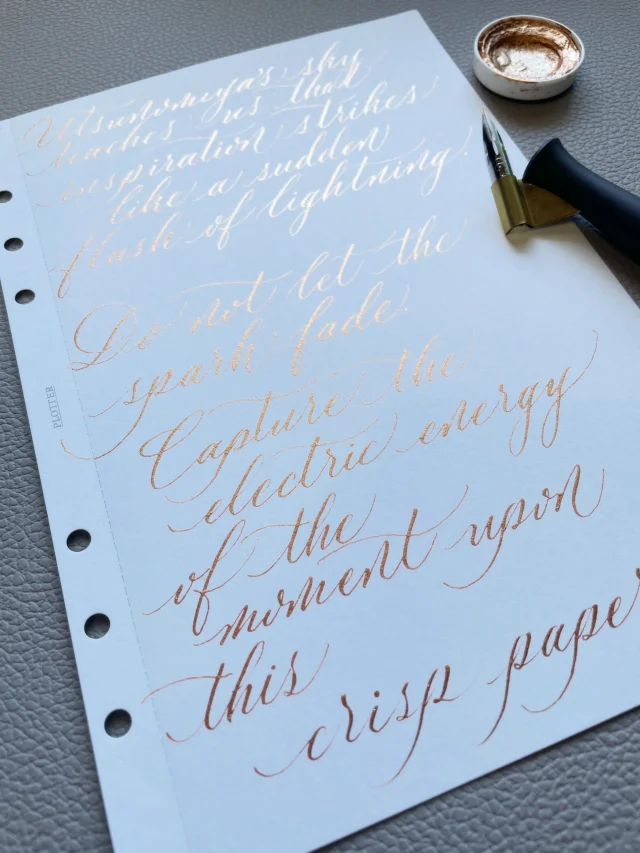 Utsunomiya's sky
teaches us that
inspiration strikes
like a sudden
flash of lightning.
Do not let the
spark fade.
Capture the
electric energy
of the
moment upon
this
crisp paper
PLOTTER